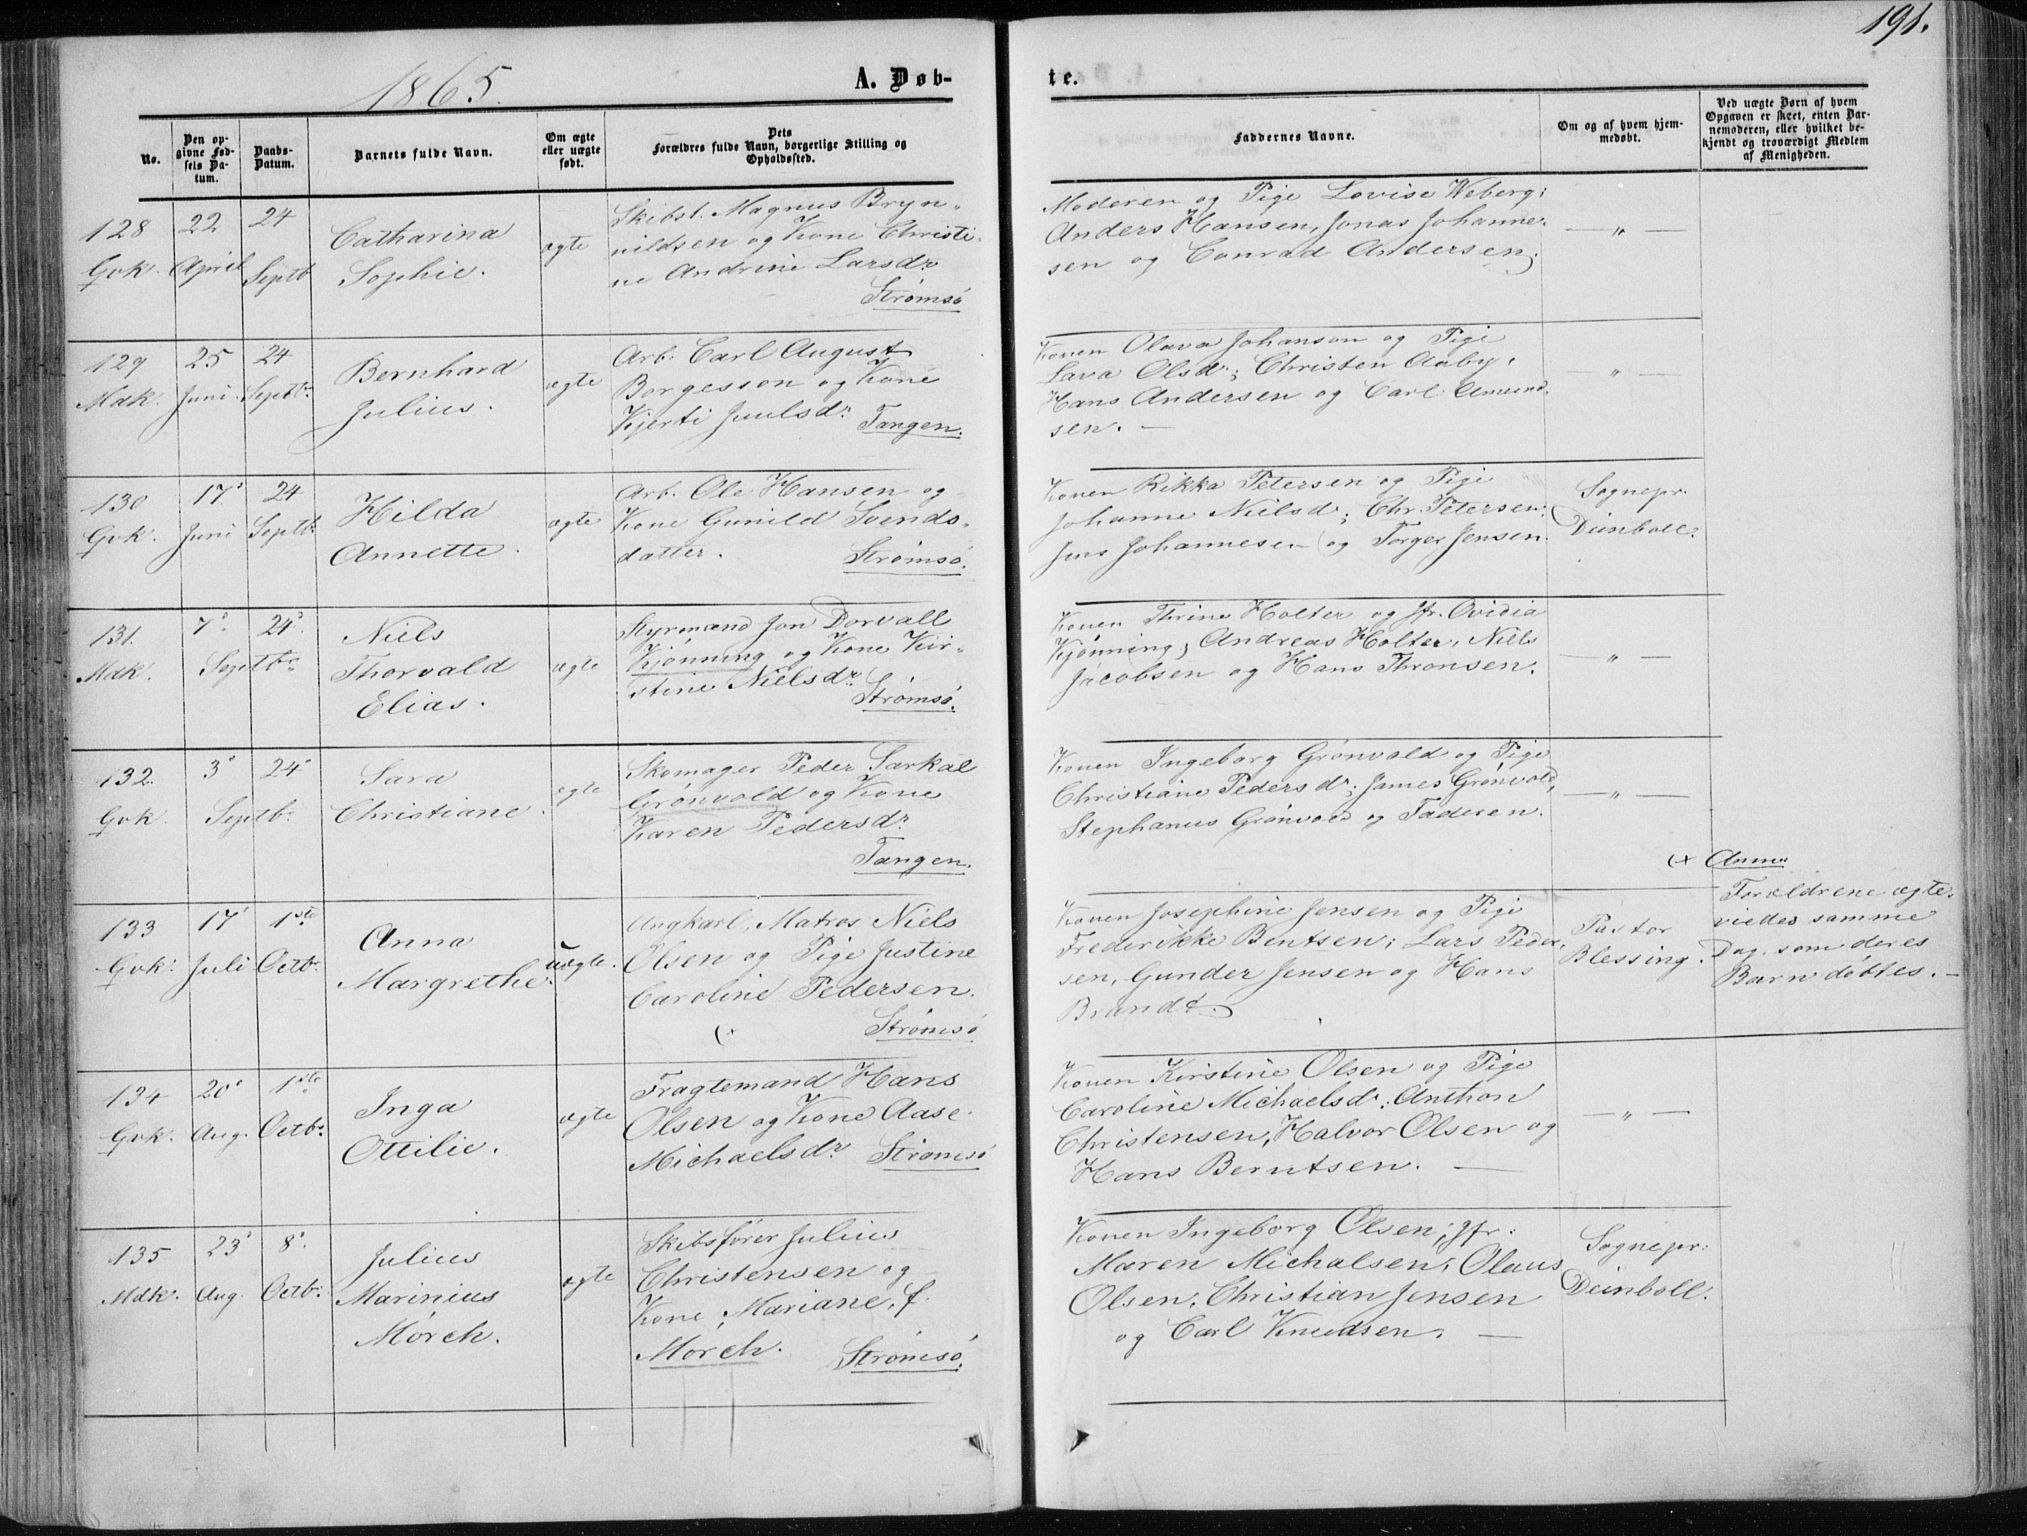 191.
1865.
A. Døb-
te.
No.
Den op-
givne Fød-
sels Da-
tum.
Daabs-
Datum.
Barnets fulde Navn.
Om ægte
eller uægte
født.
Dets
Forældres fulde Navn, borgerlige Stilling og
Opholdssted.
Faddernes Navne.
Om og af hvem hjem-
medøbt.
Ved uægte Børn af hvem
Opgaven er skeet, enten Bar-
nemoderen, eller hvilket be-
kjendt og troværdigt Medlem
af Menigheden.
128
Gvk.
22
April
24
Septb
Catharina
Sophie.
ægte
Skibst. Magnus Bryn-
nildsen og Kone Christi-
ne Andrine Larsdr
Strømsö
Moderen og Pige Lovise Weberg;
Anders Hansen, Jonas Johanne-
sen og Conrad Andersen.
— „ —
129
Mdk.
25
Juni
24
Septbr
Bernhard
Julius.
ægte
Arb. Carl August
Borgesson og Kone
Kjerti Juulsdr.
Tangen.
Konen Olava Johanson og Pige
Lava Olsdr; Christen Aaby,
Hans Andersen og Carl Amund-
sen. —
„ —
130
Gvk.
17
Juni
24
Septbr
Hilda
Annette.
ægte
Arb. Ole Hansen og
Kone Gunild Svends-
datter.
Strømsö.
Konen Rikka Petersen og Pige
Johanne Nielsdr; Chr. Petersen,
Jens Johannesen og Torger Jensen.
Sognepr.
Deinboll.
131.
Mdk.
7
24
Septbr
Niels
Thorvald
Elias.
ægte
Styrmand Jon Dorvall
Kjönning og Kone Kir-
stine Nielsdr.
Strømsö.
Konen Thrine Holter og Jfr. Ovidia
Kjönning; Andreas Holter, Niels
Jacobsen og Hans Thronsen.
— „ —
132.
Gvk.
3
24
Septbr
Sara
Christiane.
ægte
Skomager Peder Sarkal
Grönvold og Kone
Karen Pedersdr.
Tangen.
Konen Ingeborg Grönvold og Pige
Christiane Pedersdr; James Grönvold,
Stephanus Grönvold og Faderen.
— „ —
133
Gvk.
17
Juli
1ste
Octbr.
Anna
Margrethe.
uægte.
Ungkarl, Matros Niels
Olsen og Pige Justine
Caroline Pedersen.
(+
Strømsö.
Konen Josephine Jensen og Pige
Frederikke Bentsen; Lars Peder-
sen, Gunder Jensen og Hans
Brandt.
Pastor
Blessing.
(+ Anm.
Forældrene ægte-
viedes samme
Dag som deres
Barn döbtes. —
134
Gvk.
20
Aug.
1ste
Octbr.
Inga
Ottilie.
ægte
Fragtemand Hans
Olsen og Kone Aase
Michaelsdr
Strømsö
Konen Kirstine Olsen og Pige
Caroline Michaelsdr; Anthon
Christensen, Halvor Olsen og
Hans Berntsen. —
— „ —
135
Mdk.
23
Aug.
8
Octbr.
Julius
Marinius
Mörch.
ægte
Skibsförer Julius
Christensen og
Kone, Mariane, f.
Mörch.
Strømsö.
Konen Ingeborg Olsen; Jfr.
Maren Michalsen; Olaus
Olsen, Christian Jensen
og Carl Knudsen. —
Sognepr.
Deinboll.